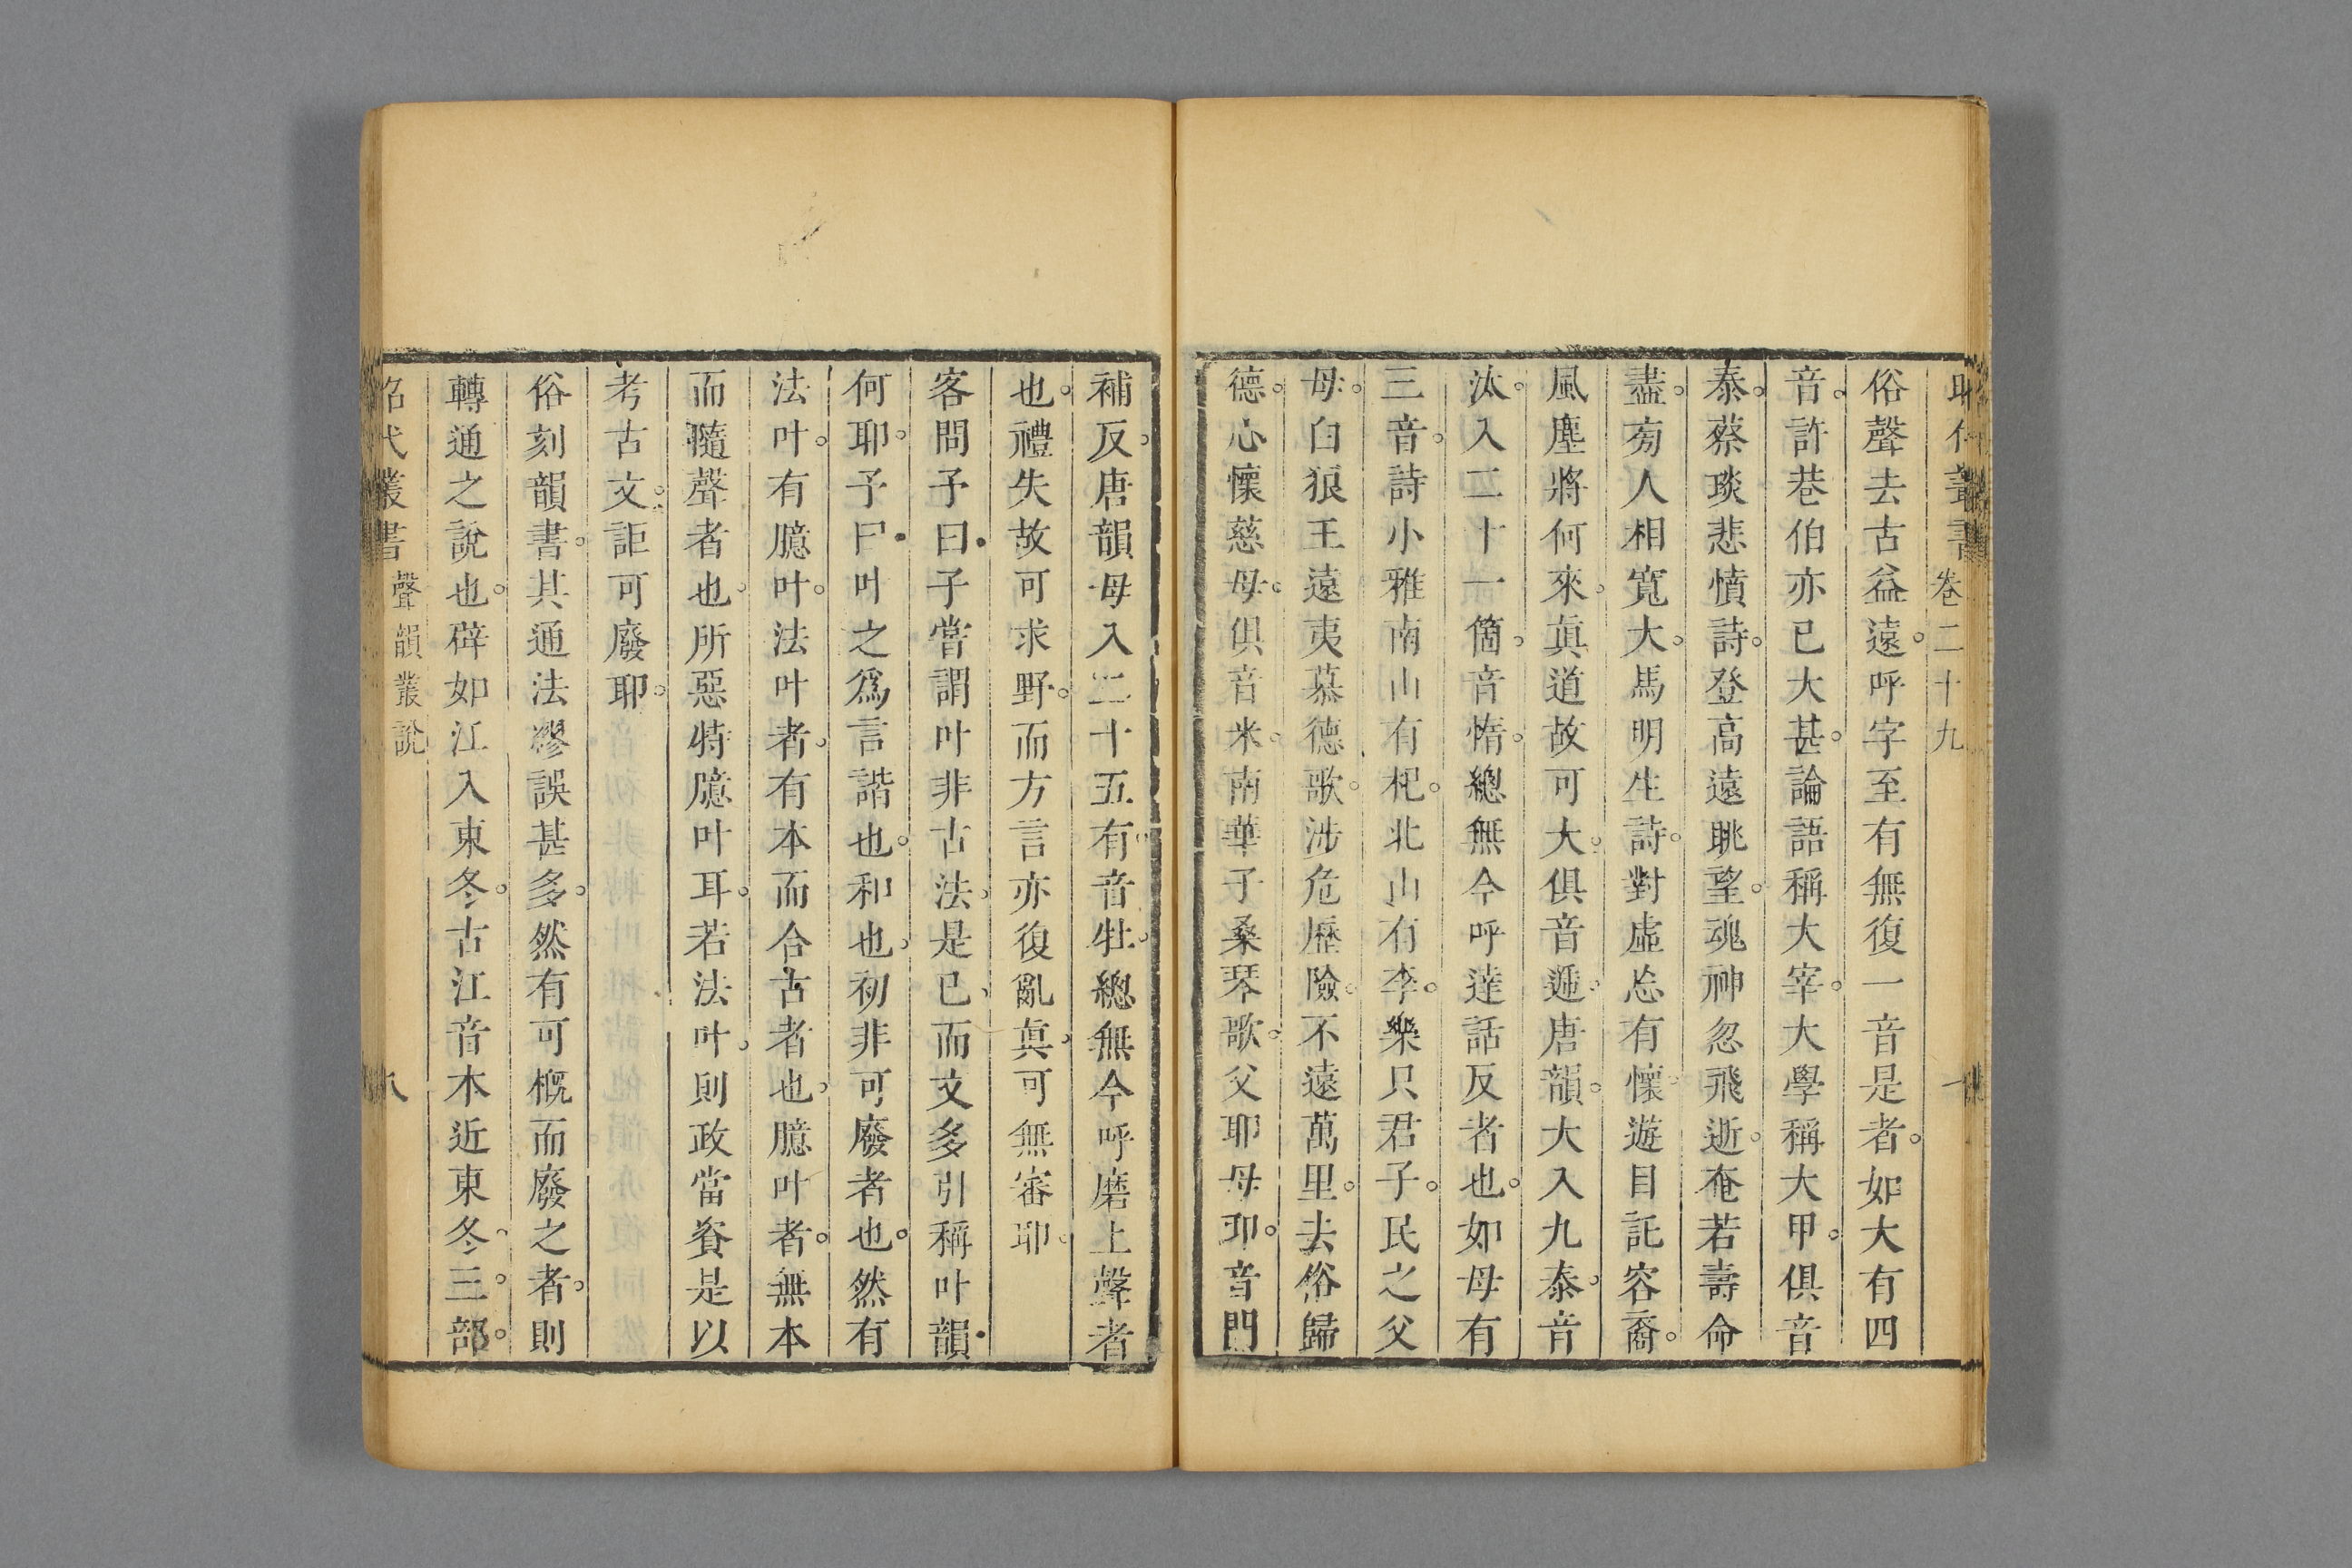 昭代叢書 卷二十九
俗聲去古益遠。呼字至有無復一音是者。如大有四
音。許巷伯亦已大甚。論語稱大宰。大學稱大甲。俱音
泰。蔡琰悲憤詩。登高遠眺望。魂神忽飛逝。奄若壽命
盡。旁人相寬大。馬明生詩。對虛忩有懷遊目託容裔。
風塵將何來。眞道故可大。俱音遞。唐韻。大入九泰。音
汏。入二十一箇。音惰。總無今呼達話反者也。如母有
三音。詩小雅南山有杞。北山有李。樂只君子。民之父
母。白狼王遠夷慕德歌。涉危歷險。不遠萬里。去俗歸
德。心懷慈母。俱音米。南華子桑琴歌。父耶母耶。音門
補反。唐韻母入二十五有。音牡。總無今呼磨上聲者
也。禮失故可求野。而方言亦復亂眞。可無審耶。
客問予曰子嘗謂叶非古法。是已。而文多引稱叶韻
何耶。予曰叶之爲言諧也。和也。初非可廢者也。然有
法叶。有臆叶。法叶者。有本而合古者也。臆叶者。無本
而隨聲者也。所惡特臆叶耳。若法叶。則政當資是以
考古文。詎可廢耶。
俗刻韻書。其通法繆誤甚多。然有可概而廢之者。則
轉通之說也。辟如江入東冬。古江音本近東冬。三部。
昭代叢書 聲韻叢說 八